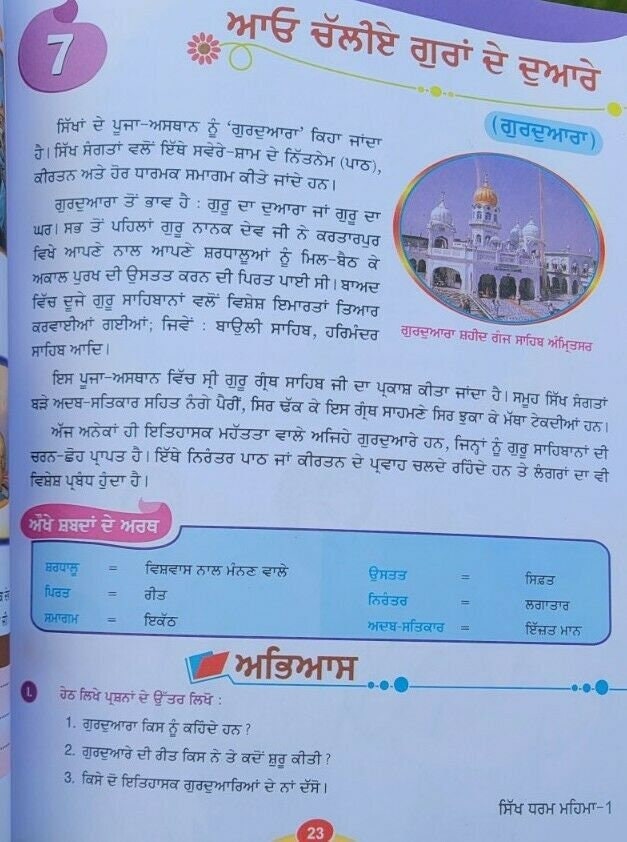 7
ਆਓ ਚੱਲੀਏ ਗੁਰਾਂ ਦੇ ਦੁਆਰੇ
(ਗੁਰਦੁਆਰਾ)
ਸਿੱਖਾਂ ਦੇ ਪੂਜਾ-ਅਸਥਾਨ ਨੂੰ 'ਗੁਰਦੁਆਰਾ' ਕਿਹਾ ਜਾਂਦਾ
ਹੈ। ਸਿੱਖ ਸੰਗਤਾਂ ਵਲੋਂ ਇੱਥੇ ਸਵੇਰੇ-ਸ਼ਾਮ ਦੇ ਨਿੱਤਨੇਮ (ਪਾਠ),
ਕੀਰਤਨ ਅਤੇ ਹੋਰ ਧਾਰਮਕ ਸਮਾਗਮ ਕੀਤੇ ਜਾਂਦੇ ਹਨ।
ਗੁਰਦੁਆਰਾ ਤੋਂ ਭਾਵ ਹੈ : ਗੁਰੂ ਦਾ ਦੁਆਰਾ ਜਾਂ ਗੁਰੂ ਦਾ
ਘਰ। ਸਭ ਤੋਂ ਪਹਿਲਾਂ ਗੁਰੂ ਨਾਨਕ ਦੇਵ ਜੀ ਨੇ ਕਰਤਾਰਪੁਰ
ਵਿਖੇ ਆਪਣੇ ਨਾਲ ਆਪਣੇ ਸ਼ਰਧਾਲੂਆਂ ਨੂੰ ਮਿਲ-ਬੈਠ ਕੇ
ਅਕਾਲ ਪੁਰਖ ਦੀ ਉਸਤਤ ਕਰਨ ਦੀ ਪਿਰਤ ਪਾਈ ਸੀ। ਬਾਅਦ
ਵਿੱਚ ਦੂਜੇ ਗੁਰੂ ਸਾਹਿਬਾਨਾਂ ਵਲੋਂ ਵਿਸ਼ੇਸ਼ ਇਮਾਰਤਾਂ ਤਿਆਰ
ਕਰਵਾਈਆਂ ਗਈਆਂ; ਜਿਵੇਂ : ਬਾਉਲੀ ਸਾਹਿਬ, ਹਰਿਮੰਦਰ
ਸਾਹਿਬ ਆਦਿ।
ਗੁਰਦੁਆਰਾ ਸ਼ਹੀਦ ਗੰਜ ਸਾਹਿਬ ਅੰਮ੍ਰਿਤਸਰ
ਇਸ ਪੂਜਾ-ਅਸਥਾਨ ਵਿੱਚ ਸ੍ਰੀ ਗੁਰੂ ਗ੍ਰੰਥ ਸਾਹਿਬ ਜੀ ਦਾ ਪ੍ਰਕਾਸ਼ ਕੀਤਾ ਜਾਂਦਾ ਹੈ। ਸਮੂਹ ਸਿੱਖ ਸੰਗਤਾਂ
ਬੜੇ ਅਦਬ-ਸਤਿਕਾਰ ਸਹਿਤ ਨੰਗੇ ਪੈਰੀਂ, ਸਿਰ ਢੱਕ ਕੇ ਇਸ ਗ੍ਰੰਥ ਸਾਹਮਣੇ ਸਿਰ ਝੁਕਾ ਕੇ ਮੱਥਾ ਟੇਕਦੀਆਂ ਹਨ।
ਅੱਜ ਅਨੇਕਾਂ ਹੀ ਇਤਿਹਾਸਕ ਮਹੱਤਤਾ ਵਾਲੇ ਅਜਿਹੇ ਗੁਰਦੁਆਰੇ ਹਨ, ਜਿਨ੍ਹਾਂ ਨੂੰ ਗੁਰੂ ਸਾਹਿਬਾਨਾਂ ਦੀ
ਚਰਨ-ਛੋਹ ਪ੍ਰਾਪਤ ਹੈ। ਇੱਥੇ ਨਿਰੰਤਰ ਪਾਠ ਜਾਂ ਕੀਰਤਨ ਦੇ ਪ੍ਰਵਾਹ ਚਲਦੇ ਰਹਿੰਦੇ ਹਨ ਤੇ ਲੰਗਰਾਂ ਦਾ ਵੀ
ਵਿਸ਼ੇਸ਼ ਪ੍ਰਬੰਧ ਹੁੰਦਾ ਹੈ।
ਔਖੇ ਸ਼ਬਦਾਂ ਦੇ ਅਰਥ
ਸ਼ਰਧਾਲੂ = ਵਿਸ਼ਵਾਸ ਨਾਲ ਮੰਨਣ ਵਾਲੇ ਉਸਤਤ = ਸਿਫ਼ਤ
ਪਿਰਤ = ਰੀਤ ਨਿਰੰਤਰ = ਲਗਾਤਾਰ
ਸਮਾਗਮ = ਇਕੱਠ ਅਦਬ-ਸਤਿਕਾਰ = ਇੱਜ਼ਤ ਮਾਨ
ਅਭਿਆਸ
I. ਹੇਠ ਲਿਖੇ ਪ੍ਰਸ਼ਨਾਂ ਦੇ ਉੱਤਰ ਲਿਖੋ :
1. ਗੁਰਦੁਆਰਾ ਕਿਸ ਨੂੰ ਕਹਿੰਦੇ ਹਨ ?
2. ਗੁਰਦੁਆਰੇ ਦੀ ਰੀਤ ਕਿਸ ਨੇ ਤੇ ਕਦੋਂ ਸ਼ੁਰੂ ਕੀਤੀ ?
3. ਕਿਸੇ ਦੋ ਇਤਿਹਾਸਕ ਗੁਰਦੁਆਰਿਆਂ ਦੇ ਨਾਂ ਦੱਸੋ।
ਸਿੱਖ ਧਰਮ ਮਹਿਮਾ-1
23